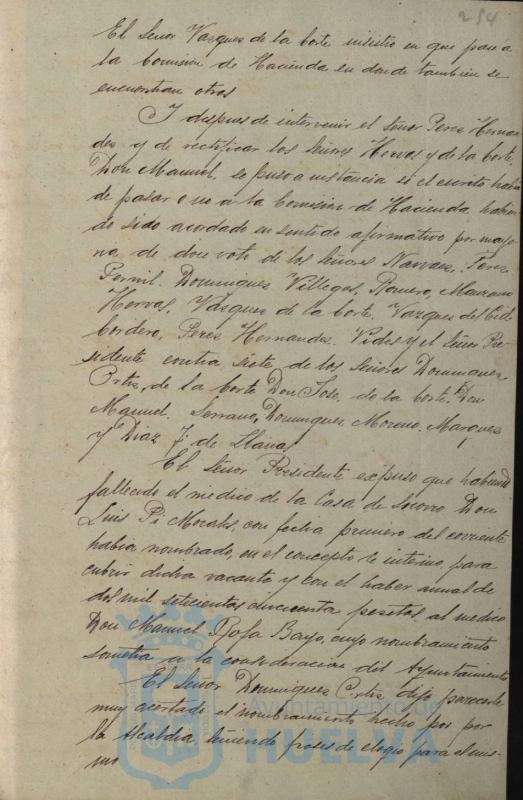 254
El Señor Vazquez de la Corte insistio en que pase a
la Comisión de Hacienda en donde tambien se
encuentran otros
Y despues de intervenir el Señor Perez Hernan-
dez y de rectificar los Señores Hervas y de la Corte,
Don Manuel, se puso a instancia si el escrito habia
de pasar o no a la Comision de Hacienda, habien-
do sido acordado en sentido afirmativo por mayo-
ria, de doce votos de los Señores Narvaez, Perez
Pornil. Dominguez Villegas, Romero, Manzano
Hervas, Vazquez de la Corte. Vazquez del Cid
Cordero, Perez Hernandez. Vides y el Señor Pre-
sidente contra siete de los Señores Dominguez
Ortiz, de la Corte Don Jose. de la Corte Don
Manuel. Serrano, Dominguez Moreno, Marquez
y Diaz F. de Llana.
El Señor Presidente expuso que habiendo
fallecido el medico de la Casa de Socorro Don
Luis Pi Morales, con fecha primero del corriente
habia nombrado, en el concepto de interino, para
cubrir dicha vacante y con el haber anual de
dos mil setecientas cincuenta pesetas al medico
Don Manuel Rofa Bayo, cuyo nombramiento
sometia a la consideracion del Ayuntamiento
El Señor Dominguez Ortiz dijo parecerle
muy acertado el nombramiento hecho por
la Alcaldia, teniendo frases de elogio para el mis-
mo
Ayuntamiento de
HUELVA